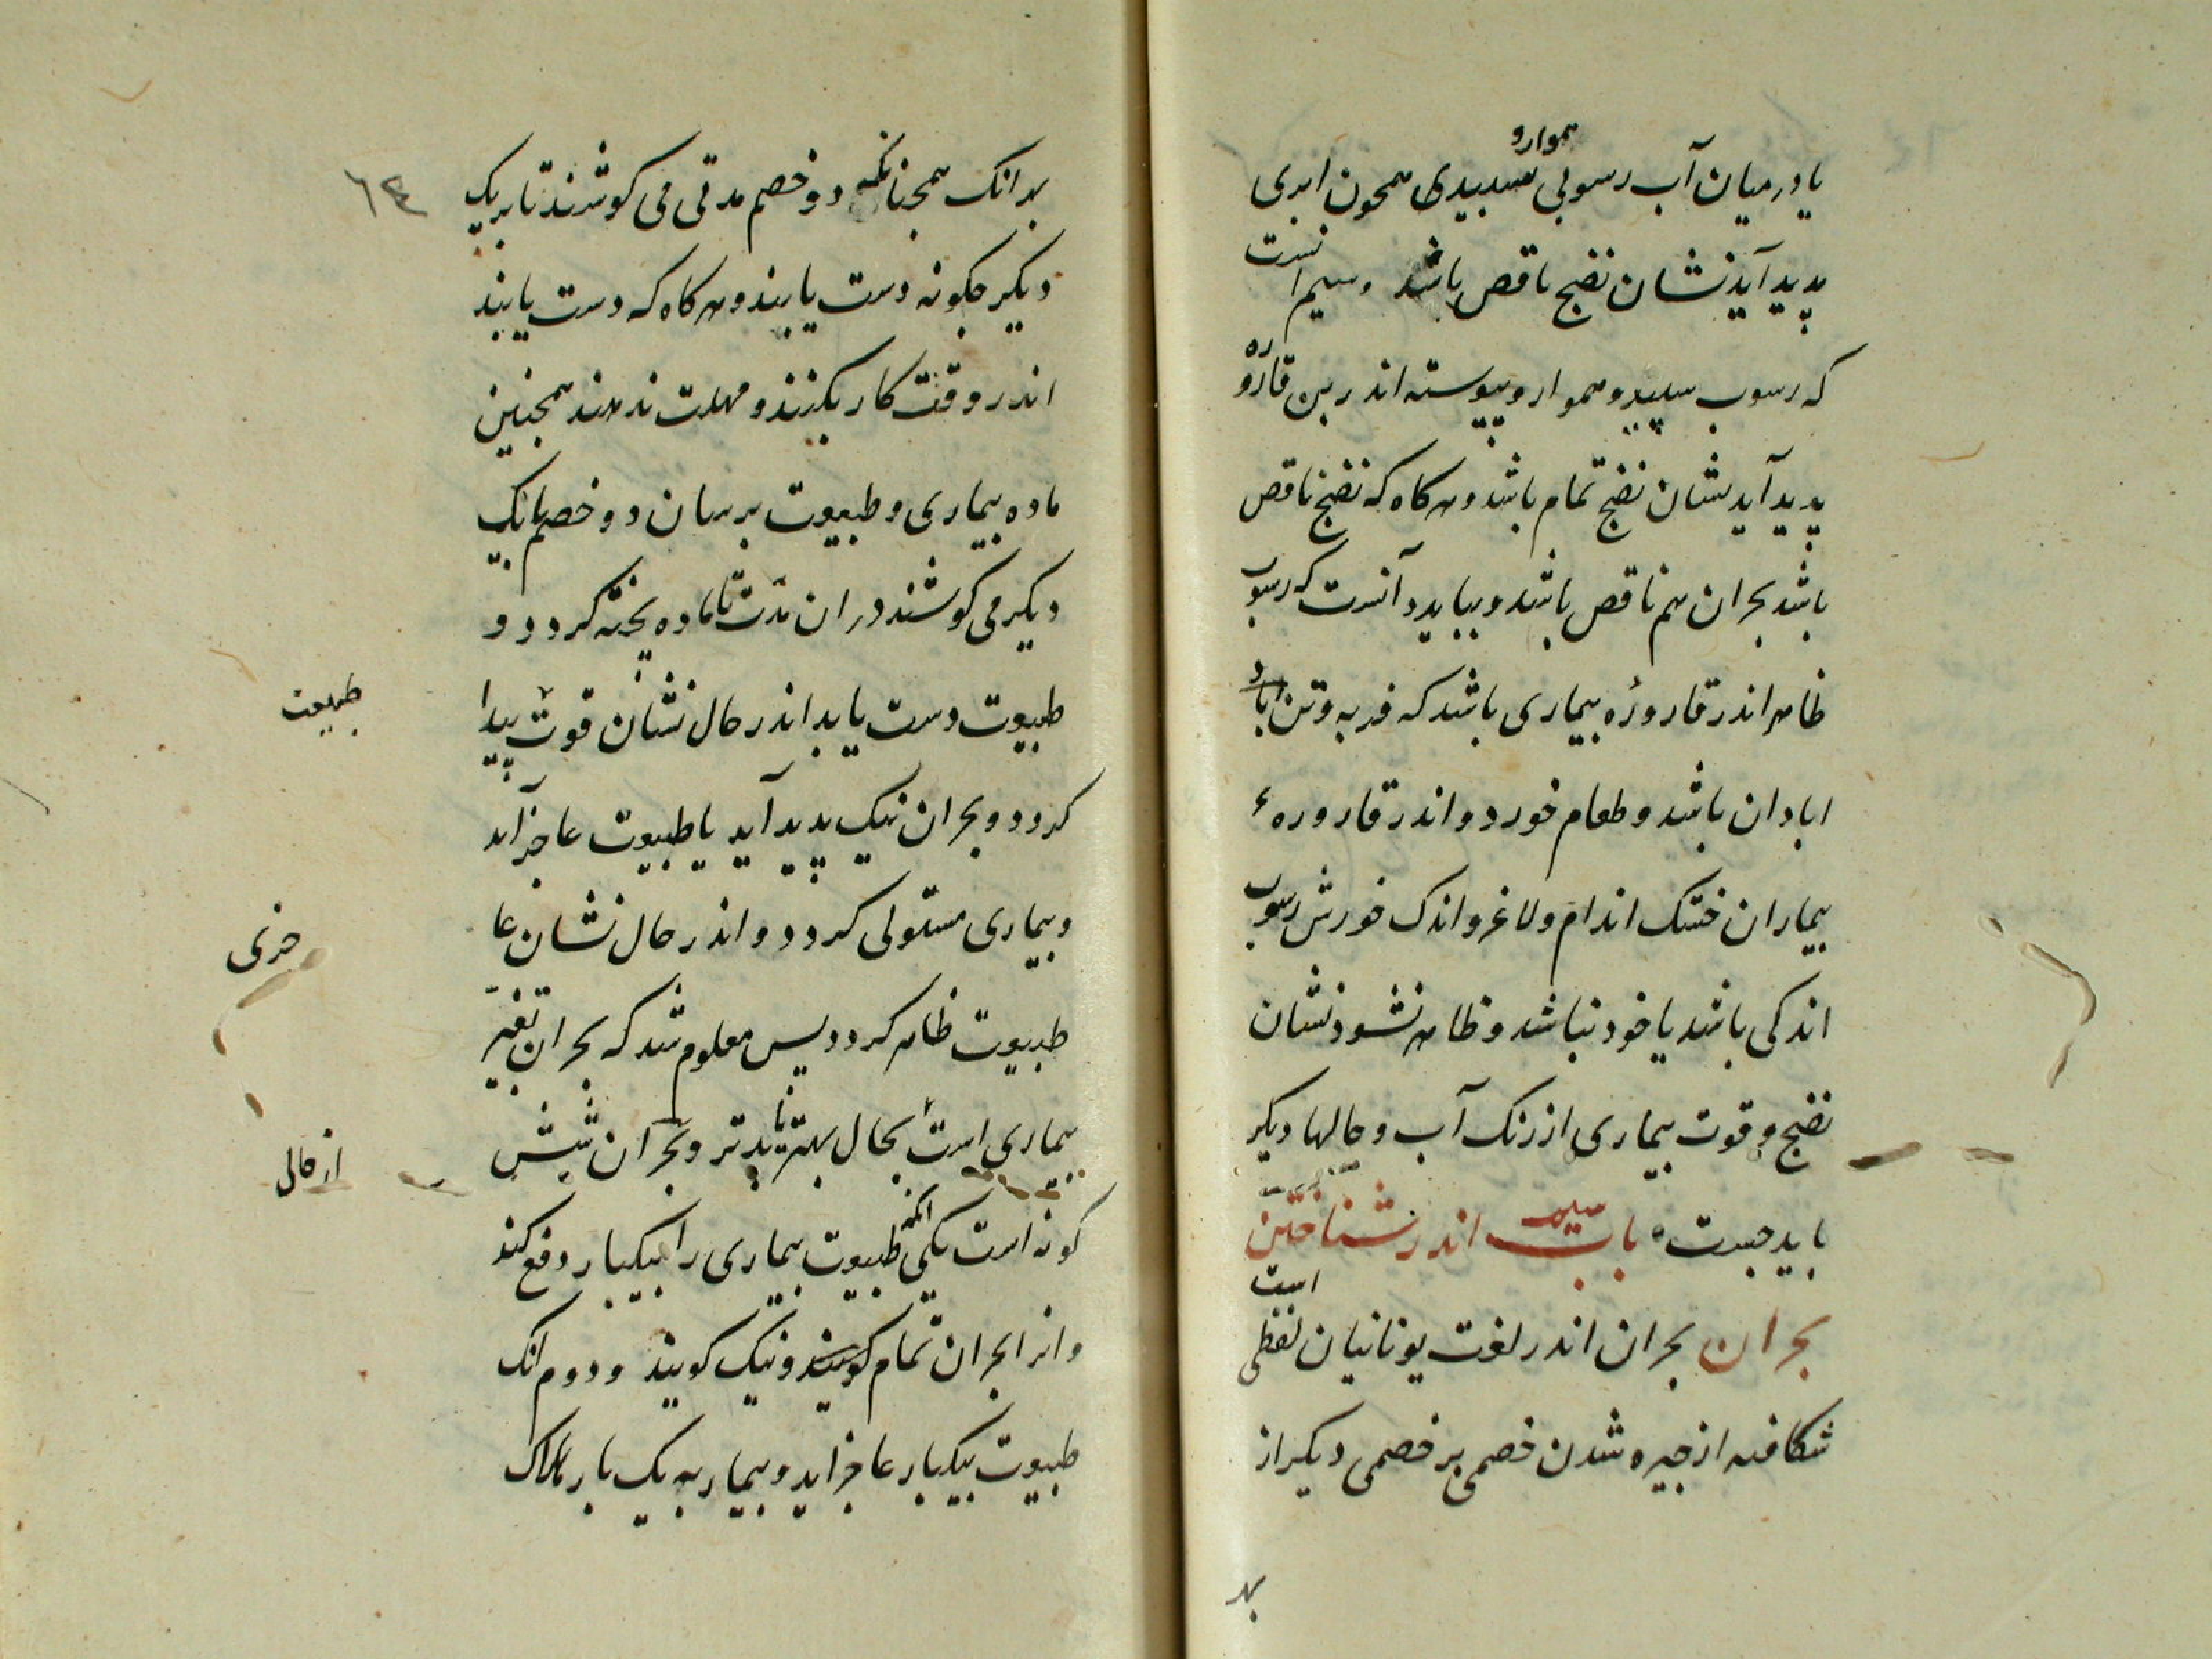 هموارو
یا در میان آب رسوبی سبیدی همجون ابری
بدید آید نشان نضج ناقص باشد وسیم انست
که رسوب سپید و هموار و پیوسته اندر بن قاروره
پدید آید نشان نضج تمام باشد و هر کاه که نضج ناقص
باشد بحران هم ناقص باشد و بباید دانست که رسوب
ظاهر اندر قاروره بیماری باشد که فربه و تن اباد
ابادان باشد و طعام خورد و اندر قاروره
بیماران خشک اندام و لاغر و اندک خورش رسوب
اندکی باشد یا خود نباشد و ظاهر نشود نشان
نضج و قوت بیماری از رنک آب و حالها دیکر
باید جست باب سیم اندر شناختن
بحران بحران اندر لغت یونانیان لفظی است
شکافته از جیره شدن خصمی بر خصمی دیکر از
بهر
٦٤
بهر انک همجنانکه دو خصم مدتی می کوشند تا بر یک
دیکر جکونه دست یابند و هر کاه که دست یابند
اندر وقت کار بکنند و مهلت ندهند همجنین
ماده بیماری و طبیعت برسان دو خصم با یک
دیکر می کوشند در ان مدت تا ماده پخته کردد و
طبیعت دست یابد اندر حال نشان قوت پیدا
طبیعت
کردد و بحران نیک پدید آید یا طبیعت عاجز آید
و بیماری مستولی کردد و اندر حال نشان عا
جزی
طبیعت ظاهر کردد پس معلوم شد که بحران تغیر
بیماری است بحال بهتر یا بدتر و بحران شش
از حالی
کونه است یکی انکه طبیعت بیماری را بیکبار دفع کند
وانرا بحران تمام کویند و نیک کویند و دوم انک
طبیعت بیکبار عاجز اید و بیمار به یک بار هلاک